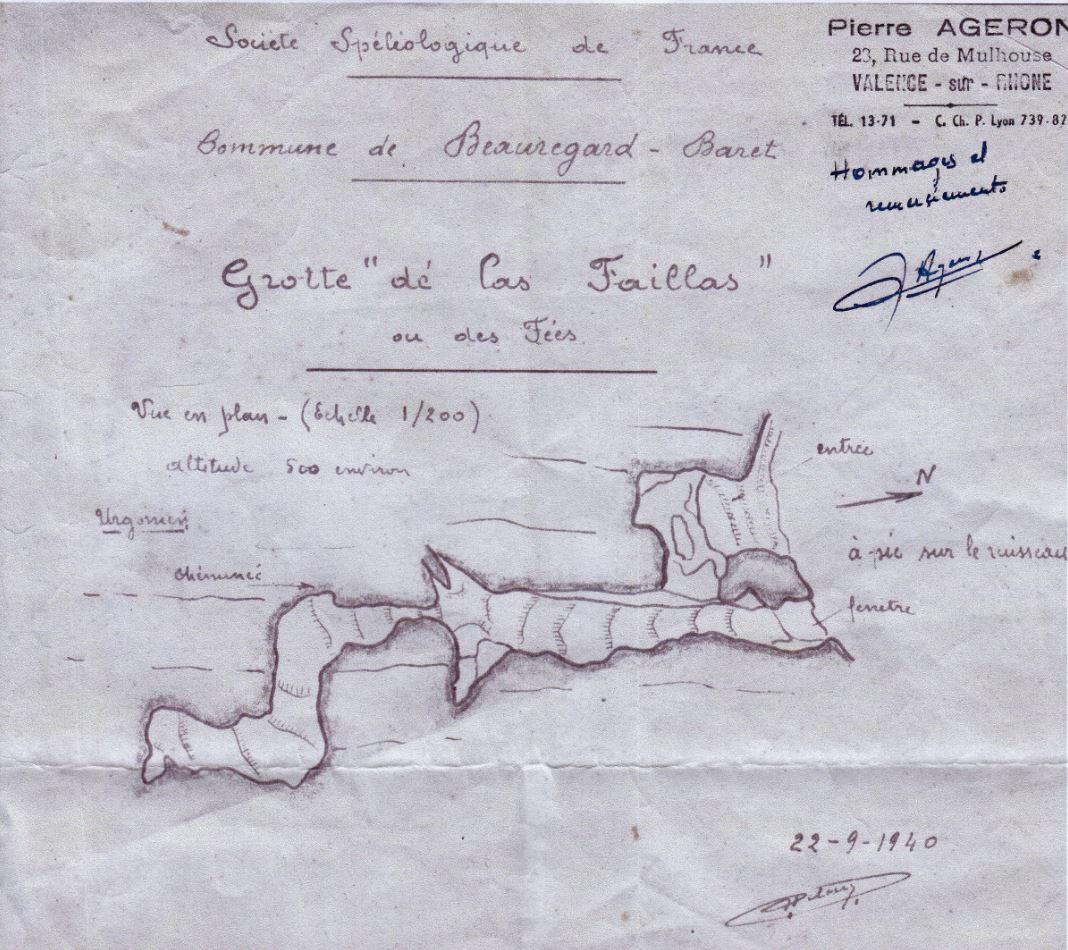 Société Spéléologique de France
Pierre AGERON
23, Rue de Mulhouse
VALENCE - sur - RHONE
TÉL. 13-71 - C. Ch. P. Lyon 739-82
Hommages et
remerciements
Commune de Beauregard - Baret
Grotte "dé las Faillas"
ou des Fées
Vue en plan - (Echelle 1/200)
altitude 500 environ
Urgonien
cheminée
entrée
N
à-pic sur le ruisseau
fenêtre
22-9-1940